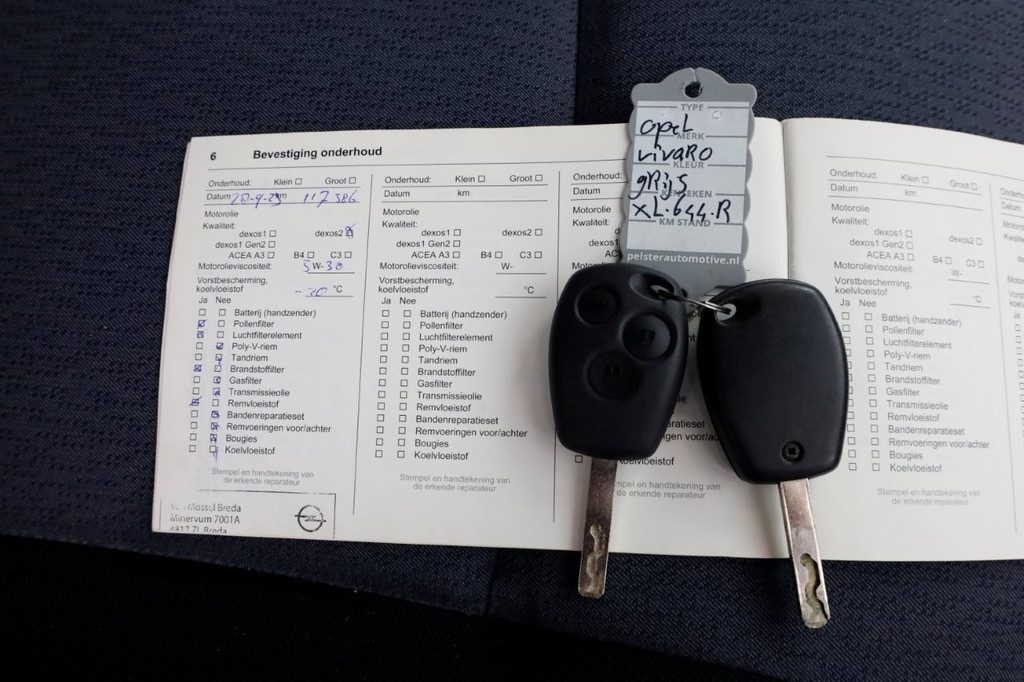 6 Bevestiging onderhoud
Onderhoud: Klein Groot
Datum 20-9-23 km 117 586
Motorolie
Kwaliteit:
dexos1 dexos2
dexos1 Gen2
ACEA A3 B4 C3
Motorolieviscositeit: 5 W-30
Vorstbescherming,
koelvloeistof -30 °C
Ja Nee
Batterij (handzender)
Pollenfilter
Luchtfilterelement
Poly-V-riem
Tandriem
Brandstoffilter
Gasfilter
Transmissieolie
Remvloeistof
Bandenreparatieset
Remvoeringen voor/achter
Bougies
Koelvloeistof
Stempel en handtekening van
de erkende reparateur
Mossel Breda
Minervum 7001A
4817 ZL Breda
Onderhoud: Klein Groot
Datum km
Motorolie
Kwaliteit:
dexos1 dexos2
dexos1 Gen2
ACEA A3 B4 C3
Motorolieviscositeit: W-
Vorstbescherming,
koelvloeistof °C
Ja Nee
Batterij (handzender)
Pollenfilter
Luchtfilterelement
Poly-V-riem
Tandriem
Brandstoffilter
Gasfilter
Transmissieolie
Remvloeistof
Bandenreparatieset
Remvoeringen voor/achter
Bougies
Koelvloeistof
Stempel en handtekening van
de erkende reparateur
Onderhoud:
Datum
Motorolie
Kwaliteit:
Koelvloeistof
handtekening van
reparateur
TYPE
opel
MERK
vivaRO
KLEUR
gRijs
KENTEKEN
XL-644-R
KM STAND
pelsterautomotive.nl
Onderhoud: Klein Groot
Datum km
Motorolie
Kwaliteit:
dexos1 dexos2
dexos1 Gen2
ACEA A3 B4 C3
Motorolieviscositeit:
W-
Vorstbescherming,
koelvloeistof °C
Ja Nee
Batterij (handzender)
Pollenfilter
Luchtfilterelement
Poly-V-riem
Tandriem
Brandstoffilter
Gasfilter
Transmissieolie
Remvloeistof
Bandenreparatieset
Remvoeringen voor/achter
Bougies
Koelvloeistof
Stempel en handtekening van
de erkende reparateur